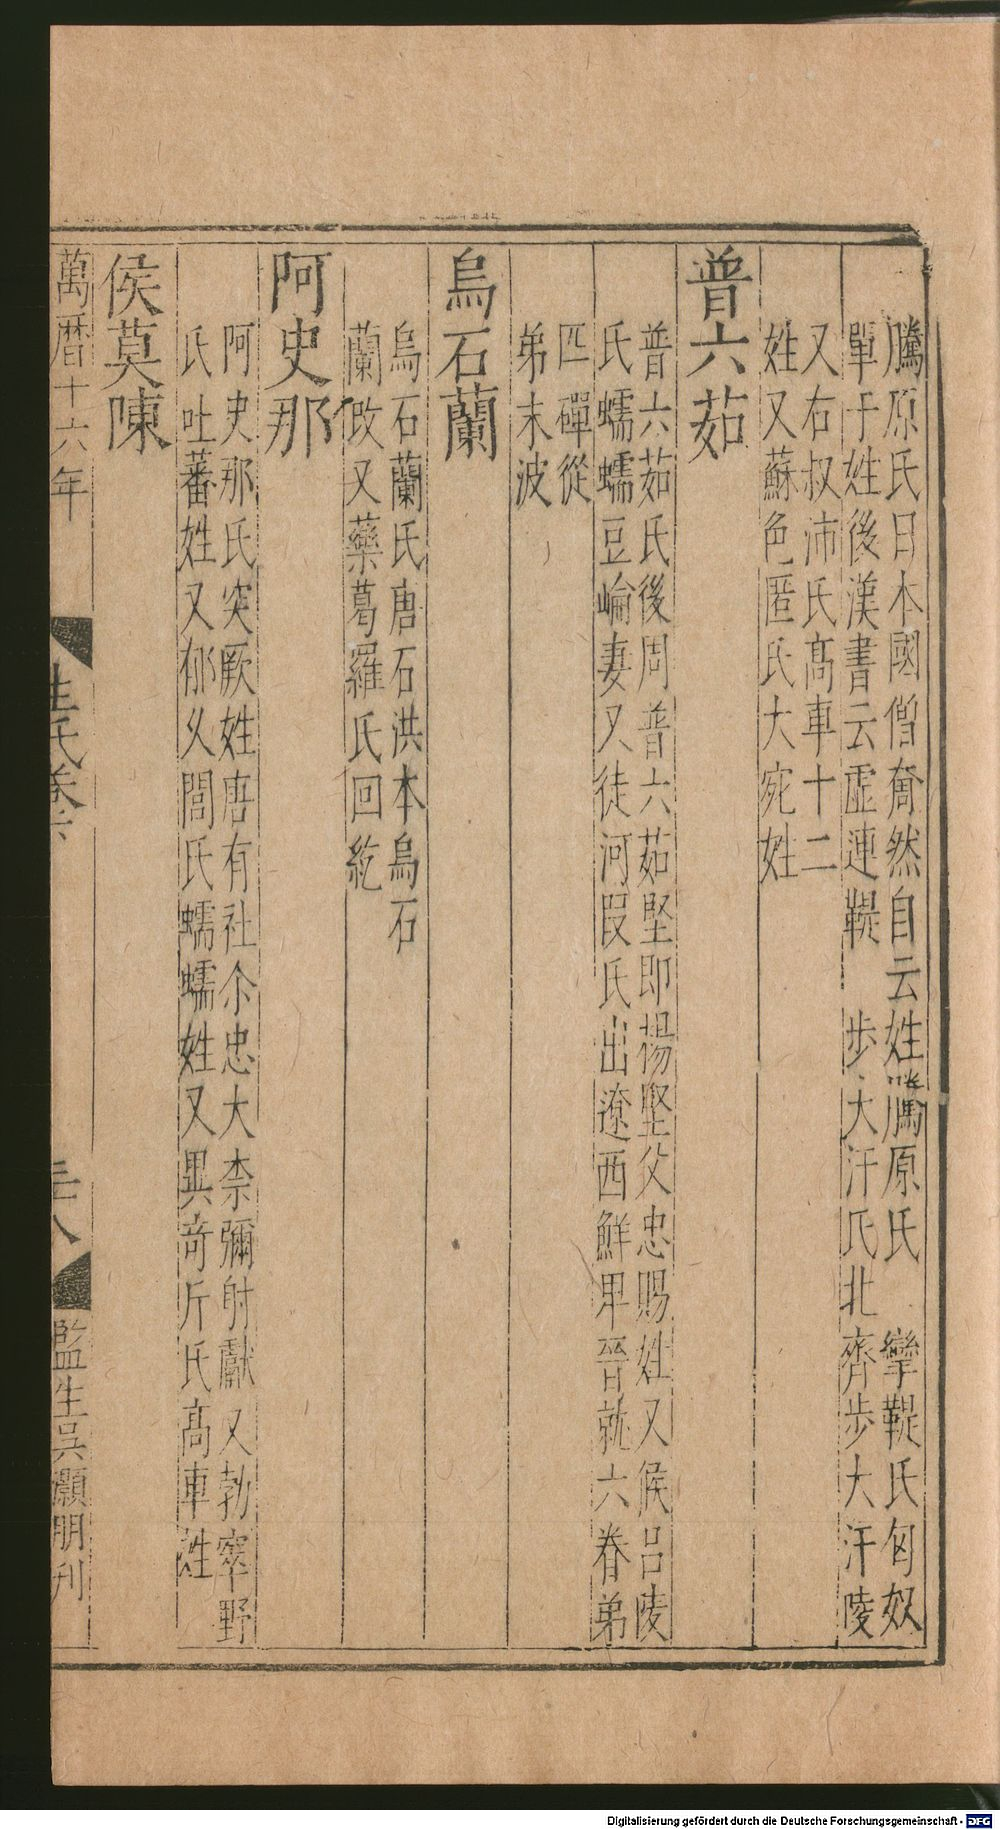 騰原氏日本國僧奝然自云姓騰原氏　攣鞮氏匈奴
單于姓後漢書云虛連鞮　步大汗氏北齊步大汗陵
又右叔沛氏髙車十二
姓又蘇色匿氏大宛姓
普六茹
普六茹氏後周普六茹堅即楊堅父忠賜姓又侯呂陵
氏蠕蠕豆崘妻又徒河叚氏出遼西鮮卑晉就六眷弟
匹磾從
弟末波
烏石蘭
烏石蘭氏唐石洪本烏石
蘭改又藥葛羅氏回紇
阿史那
阿史那氏突厥姓唐有社尒忠大柰彌射獻又勃窣野
氏吐蕃姓又郁久閭氏蠕蠕姓又異竒斤氏髙車姓
侯莫陳
萬曆十六年
姓氏卷六
三十八
監生吳灝朋刋
Digitalisierung gefördert durch die Deutsche Forschungsgemeinschaft - DFG